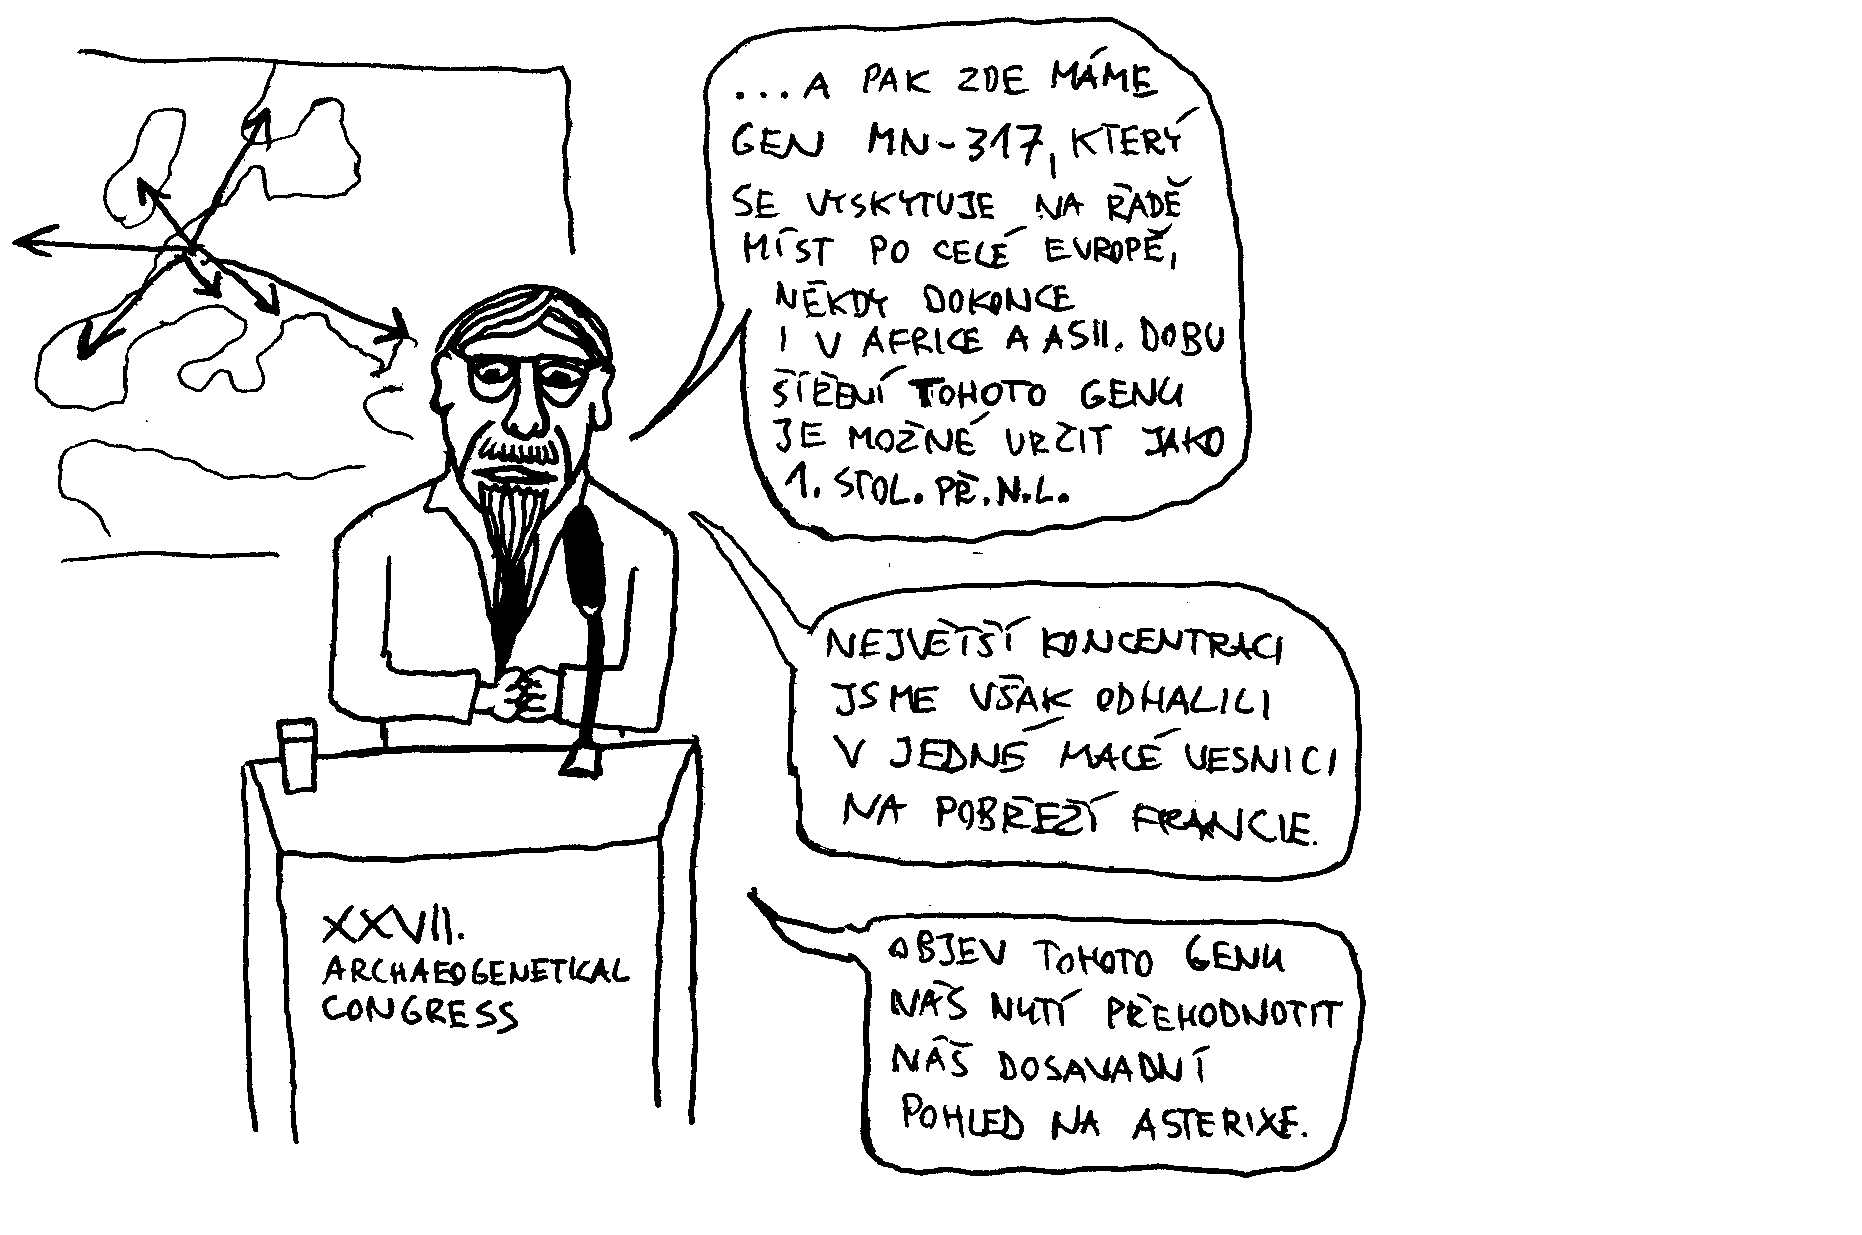 ...A PAK ZDE MÁME
GEN MN-317, KTERÝ
SE VYSKYTUJE NA ŘADĚ
MÍST PO CELÉ EVROPĚ,
NĚKDY DOKONCE
I V AFRICE A ASII. DOBU
ŠÍŘENÍ TOHOTO GENU
JE MOŽNÉ URČIT JAKO
1. STOL. PŘ.N.L.
NEJVĚTŠÍ KONCENTRACI
JSME VŠAK ODHALILI
V JEDNÉ MALÉ VESNICI
NA POBŘEŽÍ FRANCIE.
OBJEV TOHOTO GENU
NÁS NUTÍ PŘEHODNOTIT
NÁŠ DOSAVADNÍ
POHLED NA ASTERIXE.
XXVII.
ARCHAEOGENETICAL
CONGRESS